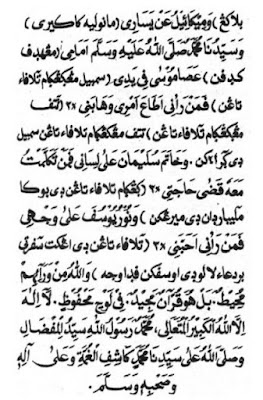 بلاكڠ) وَمِيكَائِيلُ عَنْ يَسَارِي (مانوليه كاكيري)
وَسَيِّدُنَا مُحَمَّدٌ صَلَّى اللهُ عَلَيْهِ وَسَلَّمَ اَمَامِي (مڠهدڤ
كدڤن) عَصَامُوسَى فِي يَدِي (سمبيل مڠڬڠڬم تلاڤاء
تاڠن) فَمَنْ رَانِي اَطَاعَ اَمْرِي وَهَابَنِي ×٣ (تتڤ
مڠڬڠڬام تلاڤاء تاڠن) تتڤ مڠڬڠڬام تلاڤاء تاڠن سمبيل
دي. وَخَاتَمُ سُلَيْمَانَ عَلَى لِسَانِي فَمَنْ تَكَلَّمْتُ
مَعَهُ قَضَى حَاجَتِي ×٣ (ڬڠڬام تلاڤاء تاڠن دي بوكا
مليبار دان دي ميرڠكن) وَنُوْرُ يُوسُفَ عَلَى وَجْهِي
فَمَنْ رَانِي اَحَبَّنِي ×٣ (تلاڤاء تاڠن دي اڠكت سڤرتي
بردعاء لالو دي اوسڤكن ڤدا وجه) وَاللهُ مِنْ وَرَائِهِمْ
مُحِيطٌ. بَلْ هُوَ قُرْاٰنٌ مَجِيدٌ. فِي لَوْحٍ مَحْفُوظٍ. لَا اِلٰهَ
اِلَّا اللهُ الْكَبِيرُ الْمُتَعَالِى، مُحَمَّدٌ رَسُولُ اللهِ سَيِّدُ الْمِفْضَالِ
وَصَلَّى اللهُ عَلَى سَيِّدِنَا مُحَمَّدٍ كَاشِفِ الْغُمَّةِ وَعَلَى اٰلِهِ
وَصَحْبِهِ وَسَلَّمَ.